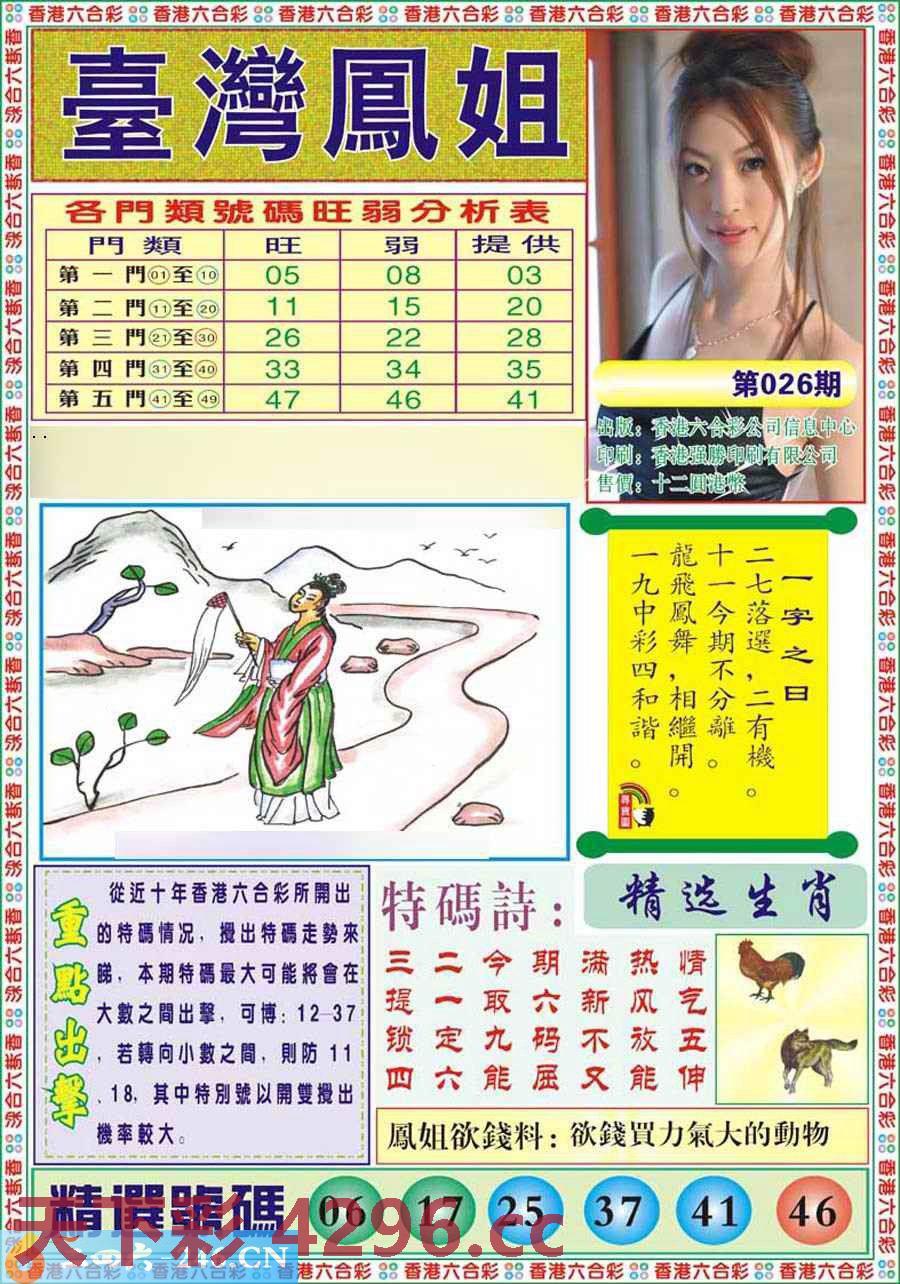 香港六合彩 香港六合彩 香港六合彩 香港六合彩 香港六合彩 香港六合彩 香港六合彩
臺灣鳳姐
各門類號碼旺弱分析表
門類 旺 弱 提供
第一門01至10 05 08 03
第二門11至20 11 15 20
第三門21至30 26 22 28
第四門31至40 33 34 35
第五門41至49 47 46 41
第026期
出版：香港六合彩公司信息中心
印刷：香港强勝印刷有限公司
售價：十二圓港幣
一字之曰
二七落選，二有機。
十一今期不分離。
龍飛鳳舞，相繼開。
一九中彩四和諧。
尋寶圖
重點出擊
從近十年香港六合彩所開出
的特碼情况，攪出特碼走勢來
睇，本期特碼最大可能將會在
大數之間出擊，可博：12-37
，若轉向小數之間，則防 11
、18，其中特別號以開雙攪出
機率較大。
特碼詩：
三二今期满热情
提一取六新风气
锁定九码不放五
四六能屈又能伸
精选生肖
鳳姐欲錢料：欲錢買力氣大的動物
精選號碼 06 17 25 37 41 46
天下彩 4296.cc
香港六合彩 香港六合彩 香港六合彩 香港六合彩 香港六合彩